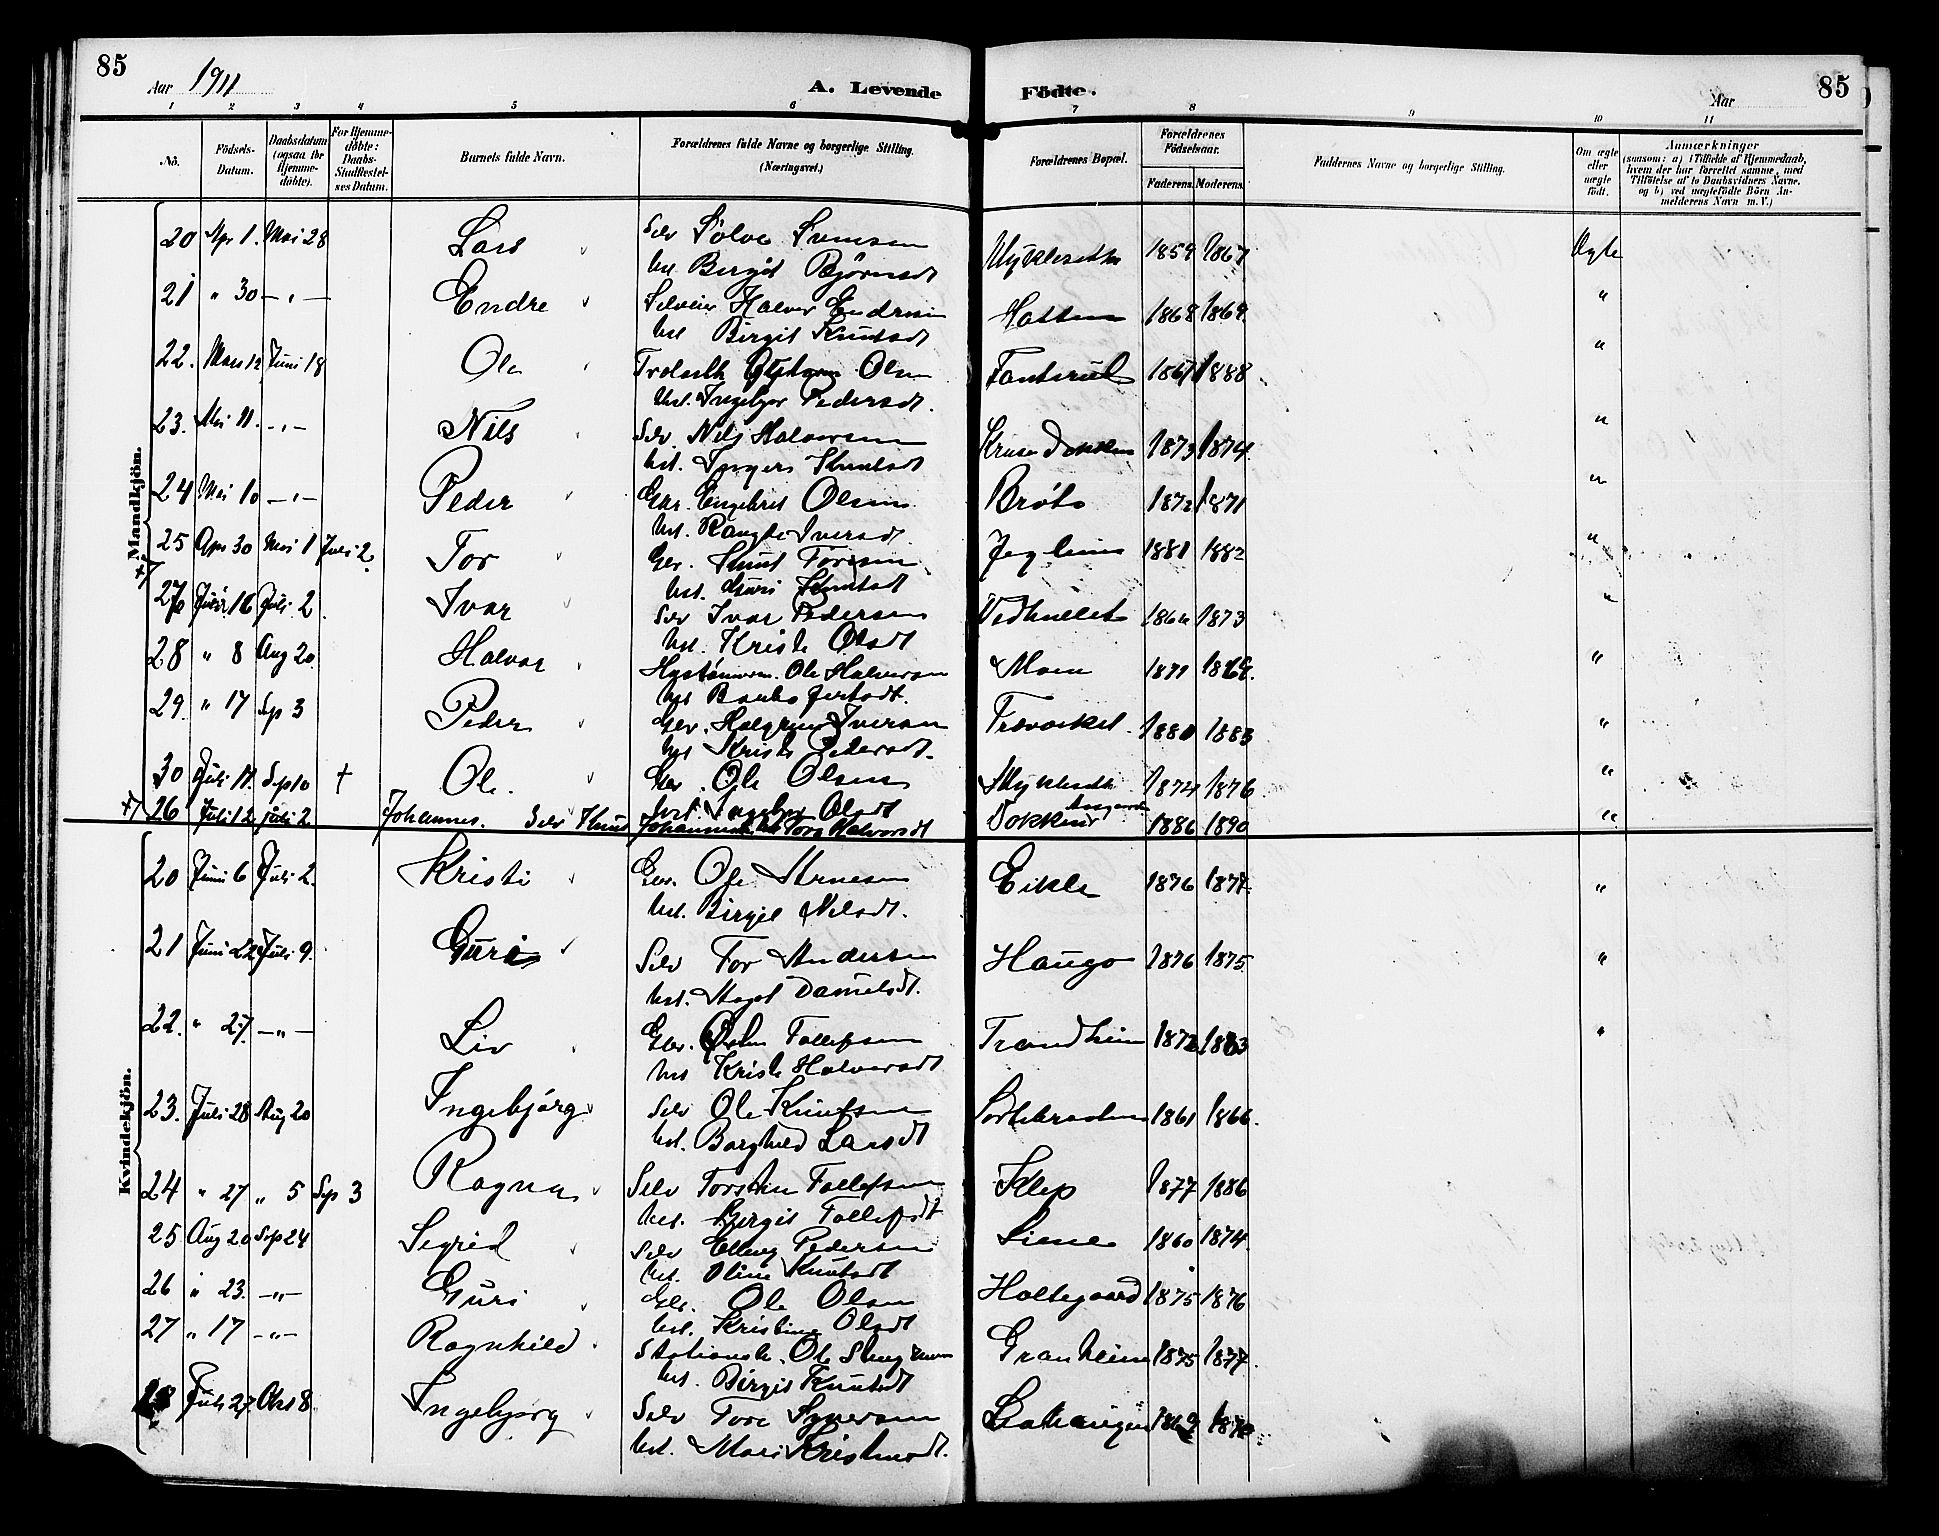 85
Aar 1911
A. Levende
Födte.
Aar
85
1 2 3 4 5 6 7 8 9 10 11
No.
Födsels-Datum.
Daabsdatum (ogsaa for Hjemme-döbte).
For Hjemme-döbte: Daabs-Stadfæstel-ses Datum.
Barnets fulde Navn.
Forældrenes fulde Navne og borgerlige Stilling.
(Næringsvei.)
Forældrenes Bopæl.
Forældrenes Födselsaar.
Faderens. Moderens.
Faddernes Navne og borgerlige Stilling.
Om ægte eller uægte födt.
Anmærkninger
(saasom: a) i Tilfælde af Hjemmedaab, hvem der har forrettet samme, med Tilföielse af to Daabsvidners Navne, og b) ved uægtefödte Börn An-melderens Navn m. V.)
Mandkjön.
20 Apr 1. Mai 28 Lars Selv Sølve Svensen 1859 1867 Ægte
Hst. Birgit Bjørnsdt
21 " 30 — " — Endre Halvor Endresen 1868 1869 "
Hst Birgit Knutsdt
22. Mars 12 Juni 18 Ole Olsen 1867 1888 "
Hst. Ingebjor Pedersdt.
23. Mai 11. — " — Nils Selv. Nils Halvorsen Dokken 1873 1874 "
Hst. Knutsdt
24 Mai 10 — " — Peder Gbr. Engebret Olsen Bröto 1872 1871 "
Hst. Rangdi Iversdt.
25 Apr 30 Mai 1 Juli 2 Tor Gbr. Knut Torsen 1881 1882 "
Hst. Guri Knutsdt
27 16 Juli 2 Ivar Selv Ivar Pedersen 1873 "
Hst. Kristi Olsdt
28 " 8 Aug 20 Halvor Ole Halvorsen Moen 1869 "
29. " 17 Sep 3 Peder Gbr. Iversen 1880 1883 "
Hst Kristi Pedersdt.
30 Juli 11. Sep 10 + Ole. Gbr. Ole Olsen 1874 1876 "
Hst. Ingebor Olsdt
26 12 juli 2 Johannes. Selv Knut Johannesen Hst Tora Halvorsdt Dokken 1886 1890 "
Kvindekjön.
20 Juni 6 Juli 2. Kristi Gbr. Ole Arnesen Eikle 1876 1877. "
Hst. Birgit Nilsdt.
21 Juni 22 Juli 9. Guri Selv Tor Andersen Haugo 1876 1875 "
Hst. Danielsdt.
22. " 27. — " — Liv Gbr. Tollefsen Trondheim 1872 1883 "
Hst Kristi Halvorsdt
23. Juli 28 Aug 20 Ingebjörg Selv Ole Knutsen Sortebraaten 1861 1866.
Hst. Borghild Larsdt
24 " 27 " 5 Sep 3 Ragna Selv Torsten Tollefsen Klep 1877 1886
Hst. Birgit Tollefsdt
25 Aug 20 Sep 24 Sigrid Selv Elling Pedersen 1860 1874.
Hst. Oline Knutsdt
26 " 23. — " — Guri Gbr. Ole Olsen Holtegaard 1875 1876
Hst. Kristine Olsdt
27 " 17 — " — Ragnhild Ole Granheim 1875 1877.
Hst. Birgit Knutsdt
28 Juli 27. Okt 8 Ingebjorg Selv Tore 1869 1870
Hst. Mari Kristensdt.